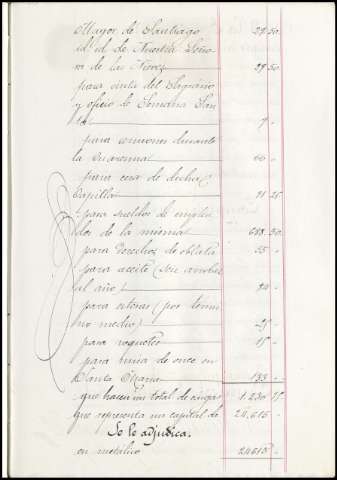 Mayor de Santiago 29 50
id id de Nuestra Seño
ra de las Nieves 29 50
para cinta del Sagrario
y oficio de Semana San
ta 7 "
para sermones durante
la Cuaresma 60 "
para cera de dicha
Capilla 71 25
para sueldos de emplea
dos de la misma 688 50
para derechos de oblata 55 "
para aceite (seis arrobas
al año) 84 "
para esteras (por térmi
no medio) 25 "
para roquetes 15 "
para misa de once en
Santa María 133 "
que hacen un total de cargas 1.230 75
que representa un capital de 24,615 "
Se le adjudica.
en metálico 24615 "